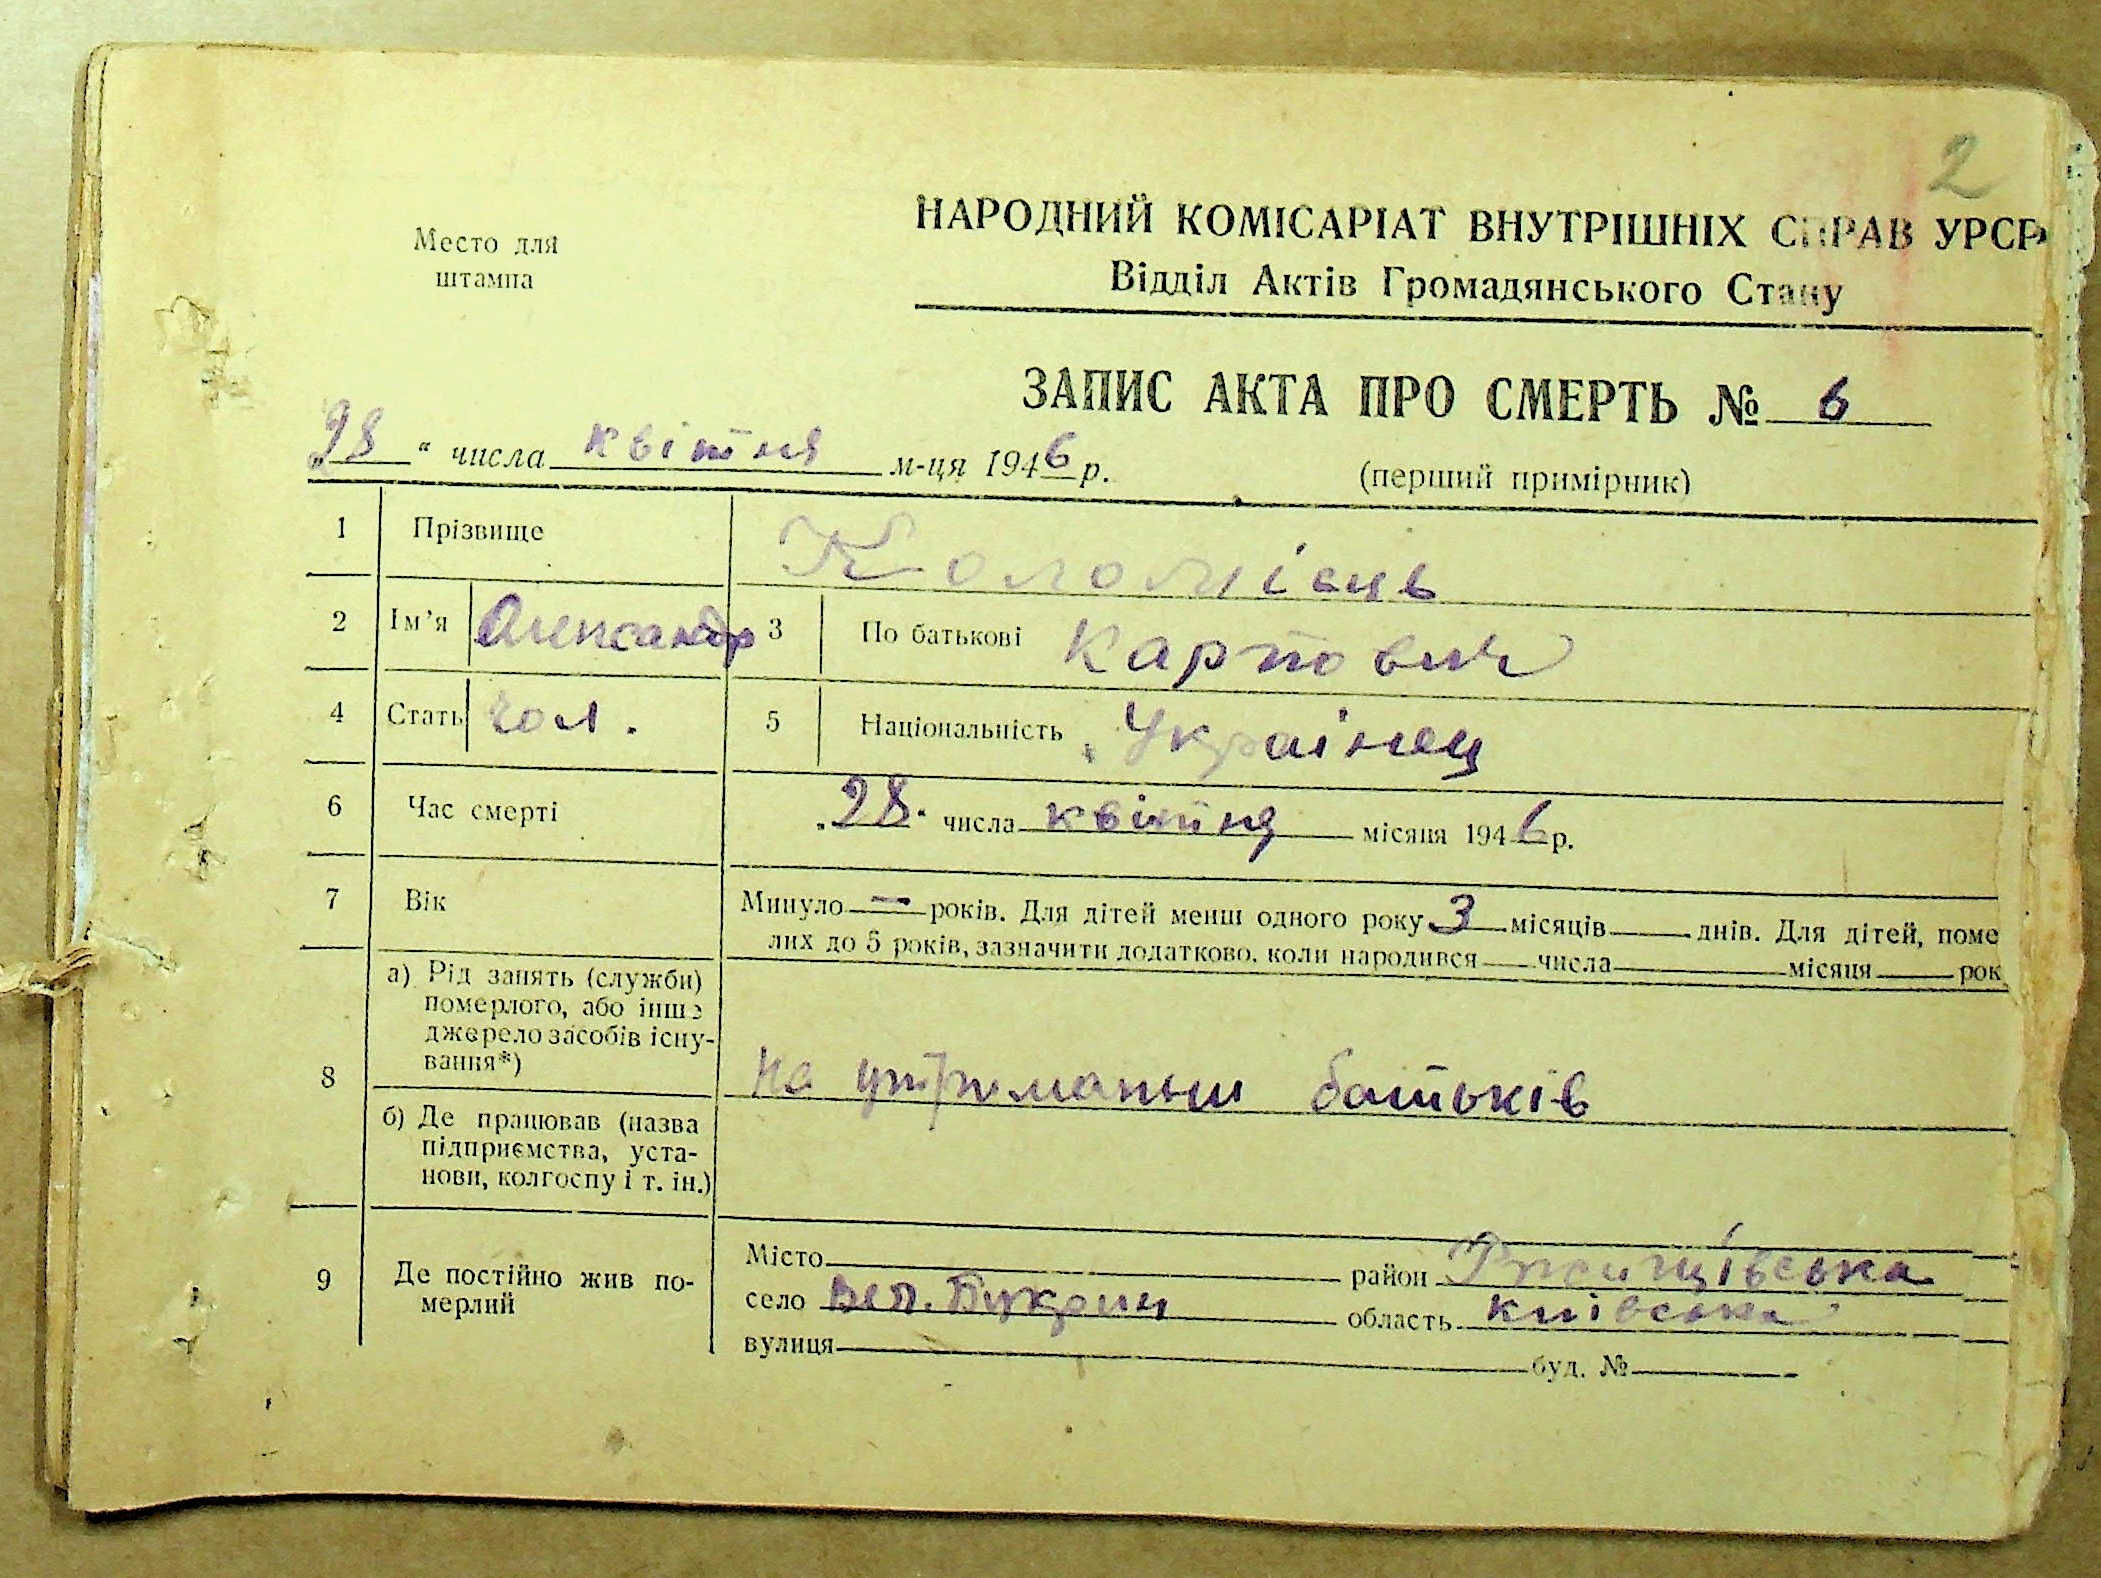 2
Место для
штампа
НАРОДНИЙ КОМІСАРІАТ ВНУТРІШНІХ СПРАВ УРСР
Відділ Актів Громадянського Стану
ЗАПИС АКТА ПРО СМЕРТЬ № 6
„28“ числа квітня м-ця 1946 р.
(перший примірник)
1 Прізвище Коломієць
2 Ім’я Олександр 3 По батькові Карпович
4 Стать чол. 5 Національність Українец
6 Час смерті „28“ числа квітня місяця 1946 р.
7 Вік Минуло — років. Для дітей менш одного року 3 місяців днів. Для дітей, поме
лих до 5 років, зазначити додатково, коли народився числа місяця рок
8 а) Рід занять (служби)
померлого, або інше
джерело засобів існу-
вання*)
На утриманьи батьків
б) Де працював (назва
підприємства, уста-
нови, колгоспу і т. ін.)
9 Де постійно жив по-
мерлий
Місто район Ржищівська
село Вел. Букрин область київська
вулиця буд. №